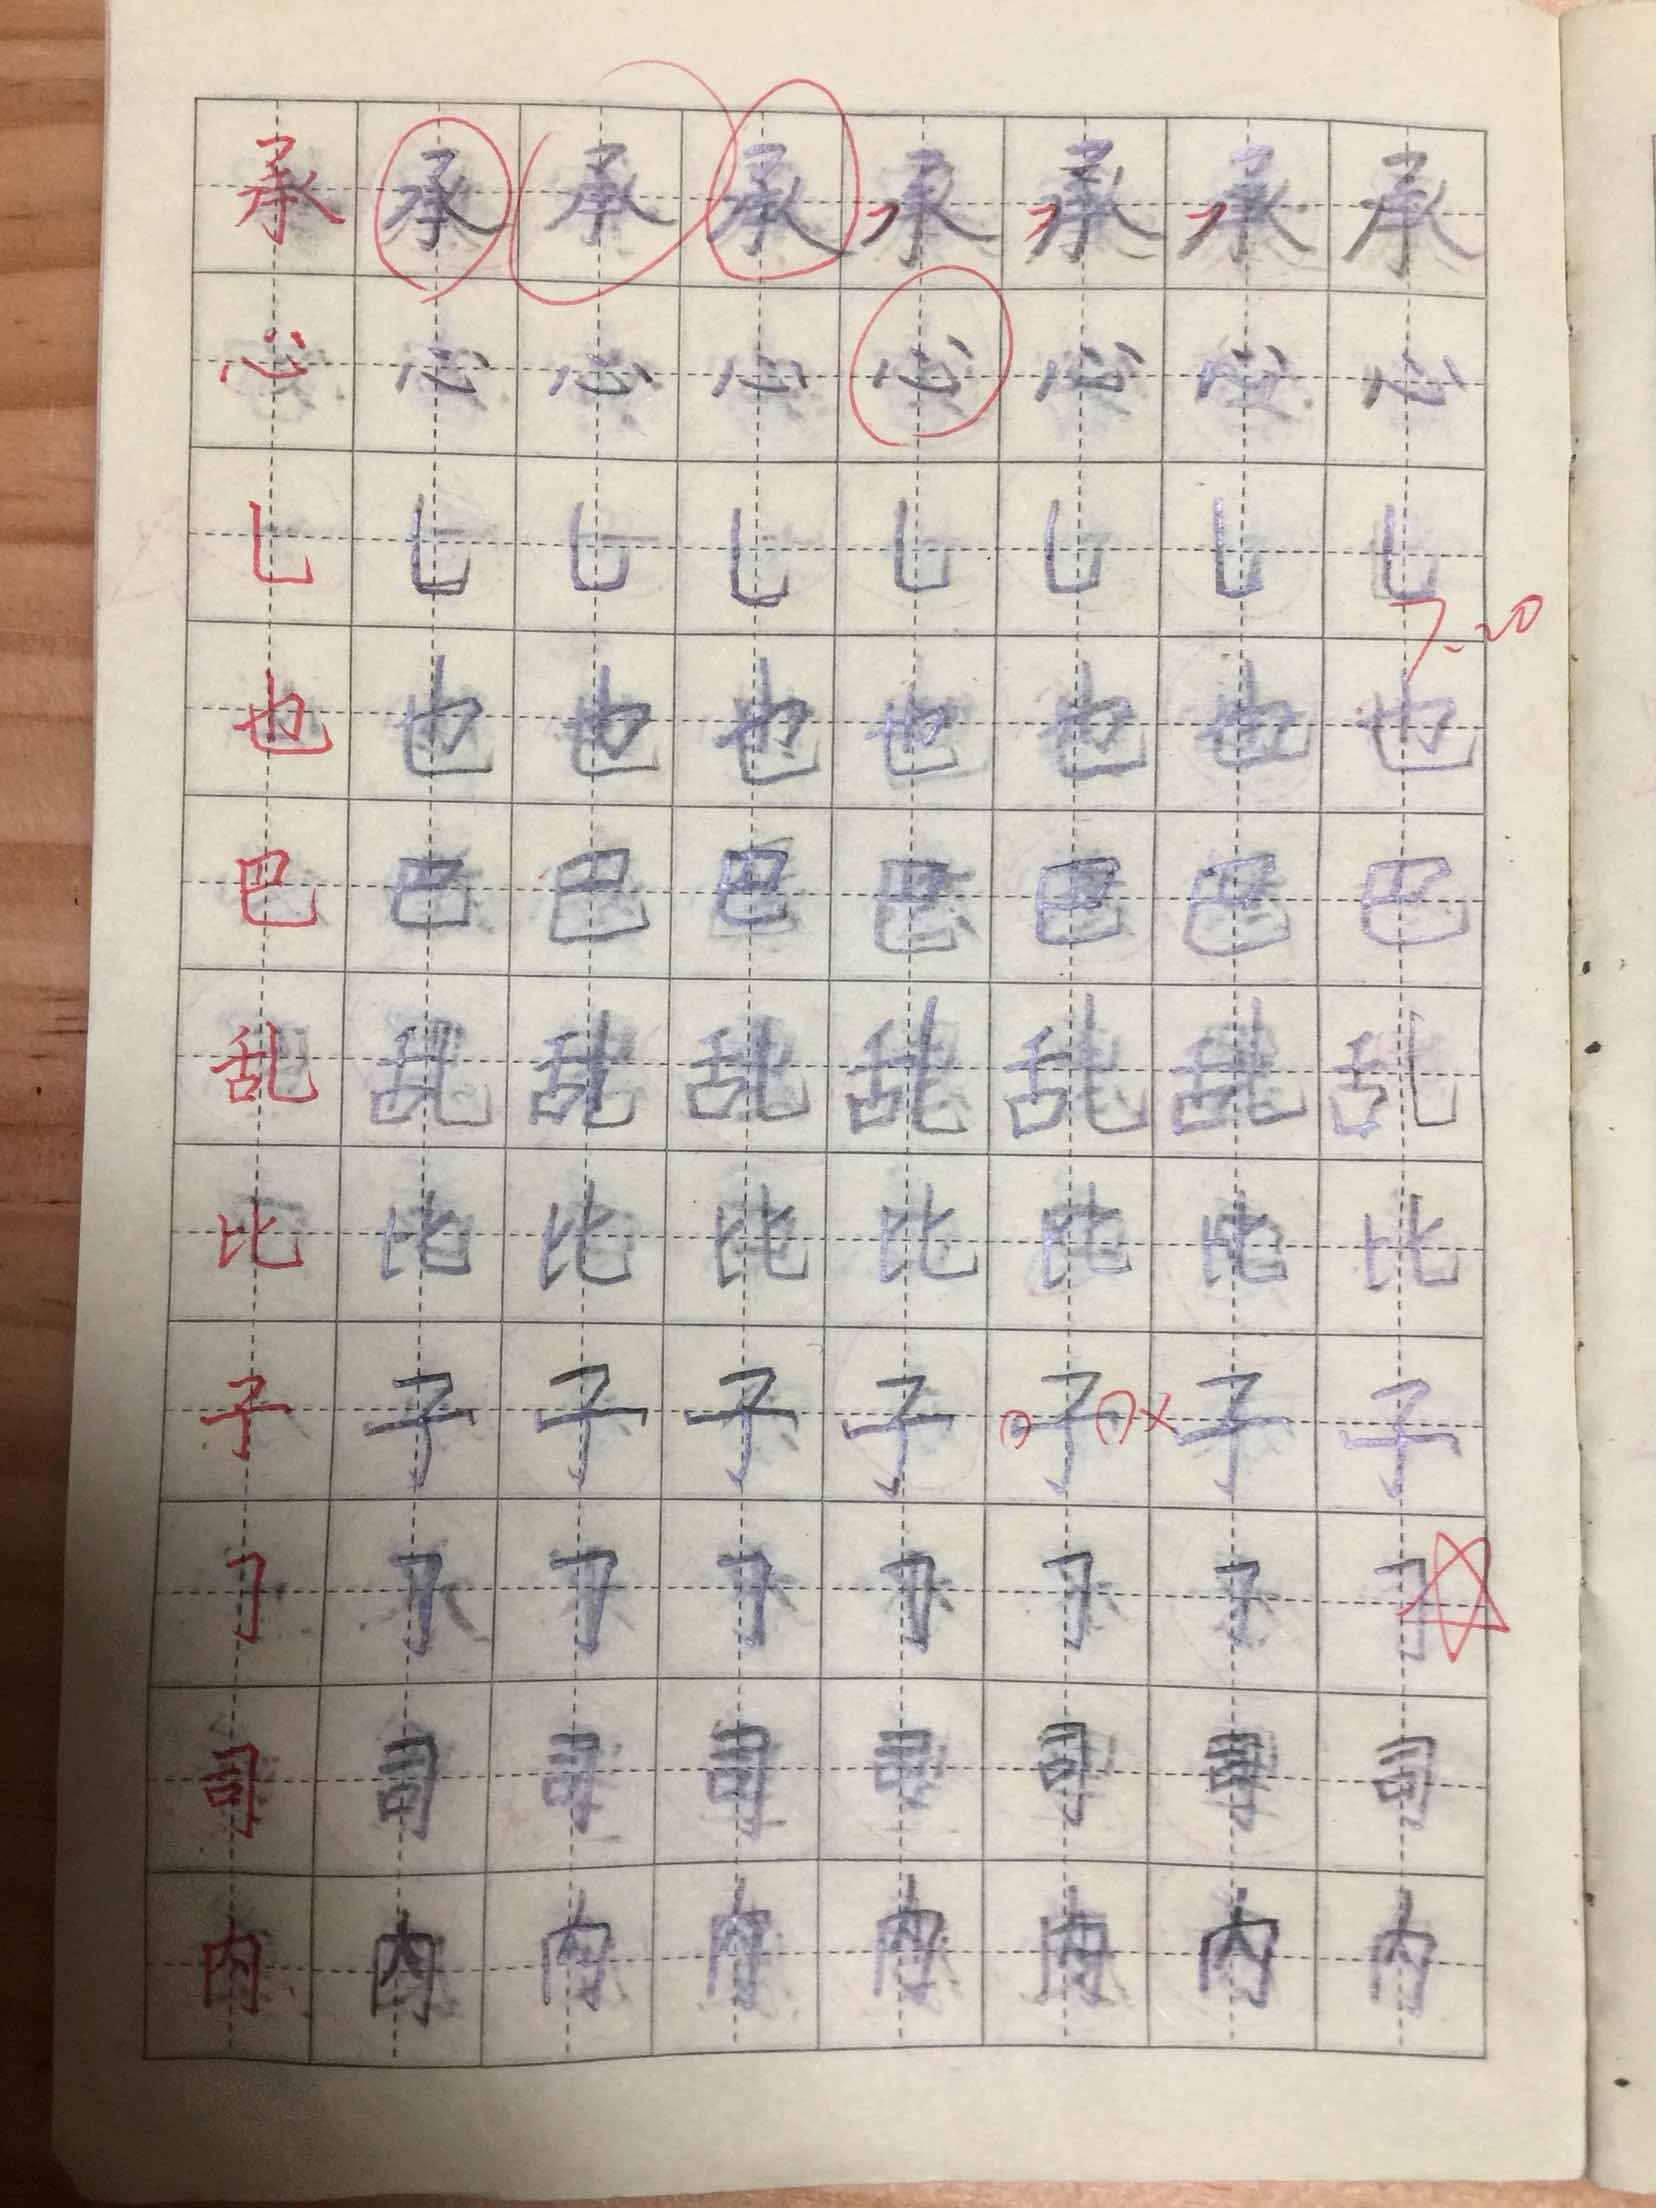 承承承承承承承承
心心心心心心心心
乚乚乚乚乚乚乚乚
7-20
也也也也也也也也
巴巴巴巴巴巴巴巴
乱乱乱乱乱乱乱乱
比比比比比比比比
子子子子子子子子
𠃌𠃌𠃌𠃌𠃌𠃌𠃌𠃌
司司司司司司司司
内内内内内内内内